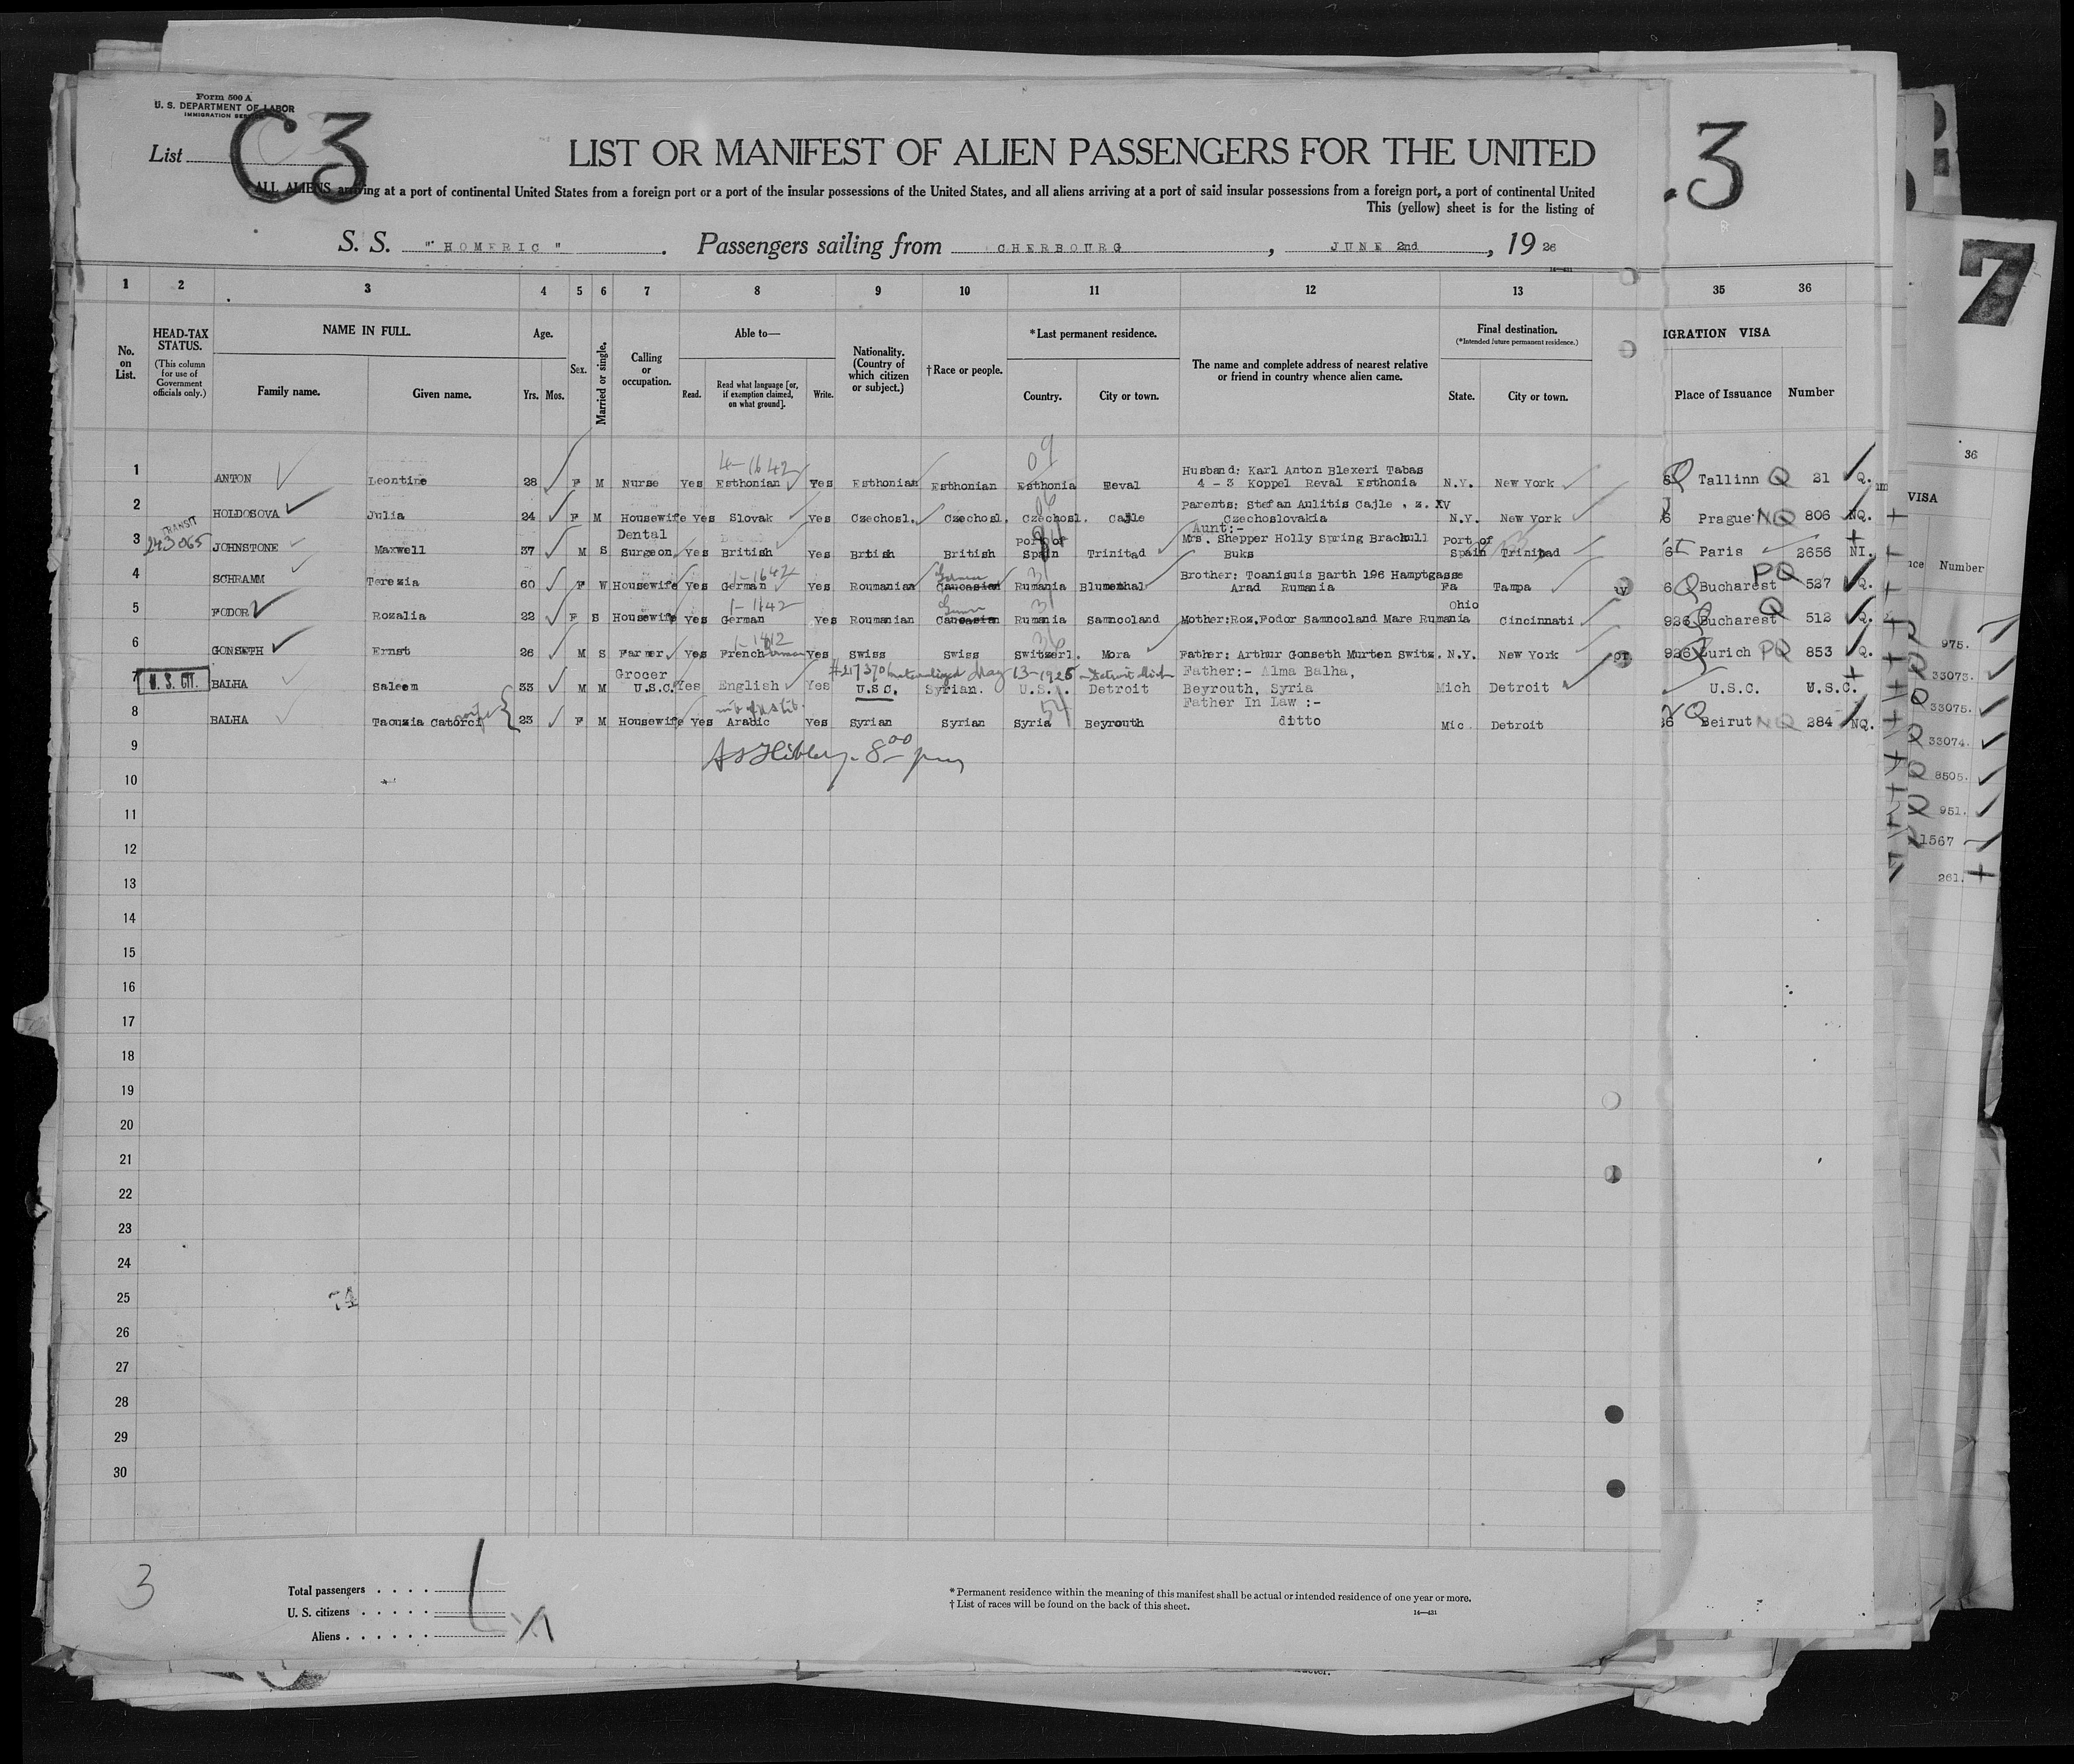 Form 500 A
U. S. DEPARTMENT OF LABOR
IMMIGRATION
List C3
LIST OR MANIFEST OF ALIEN PASSENGERS FOR THE UNITED
ALL ALIENS arriving at a port of continental United States from a foreign port or a port of the insular possessions of the United States, and all aliens arriving at a port of said insular possessions from a foreign port, a port of continental United
This (yellow) sheet is for the listing of
S. S. "HOMERIC". Passengers sailing from CHERBOURG, JUNE 2nd, 19 26
.3
7
1 2 3 4 5 6 7 8 9 10 11 12 13 35 36
No. on List.
HEAD-TAX STATUS.
(This column for use of Government officials only.)
NAME IN FULL.
Family name. Given name.
Age.
Yrs. Mos.
Sex.
Married or single.
Calling or occupation.
Able to—
Read. Read what language [or, if exemption claimed, on what ground]. Write.
Nationality. (Country of which citizen or subject.)
† Race or people.
*Last permanent residence.
Country. City or town.
The name and complete address of nearest relative or friend in country whence alien came.
Final destination.
(*Intended future permanent residence.)
State. City or town.
IGRATION VISA
Place of Issuance Number
4-1642 09
Husband: Karl Anton Blexeri Tabas
1 ANTON Leontine 28 F M Nurse Yes Esthonian Yes Esthonian Esthonian Esthonia Reval 4 - 3 Koppel Reval Esthonia N.Y. New York Tallinn Q 21 Q.
Parents: Stefan Aulitis Cajle , z. XV
2 HOLDOSOVA Julia 24 F M Housewife Yes Slovak Yes Czechosl. Czechosl. Czechosl. Cajle Czechoslovakia N.Y. New York 6 Prague NQ 806 NQ.
TRANSIT Dental Port of Aunt:- Port of
3 243065 JOHNSTONE Maxwell 37 M S Surgeon Yes British Yes British British Spain Trinitad Mrs. Shepper Holly Spring Brackull Buks Spain Trinibad 6 Paris 2656 NI.
1-1642 German 31
4 SCHRAMM Terezia 60 F W Housewife Yes German Yes Roumanian Caucasian Rumania Blumenthal Brother: Toanisuis Barth 196 Hamptgasse Arad Rumania Fa Tampa 6 Q Bucharest PQ 527 Q.
1-1642 German 31 Ohio
5 FODOR Rozalia 22 F S Housewife Yes German Yes Roumanian Caucasian Rumania Samncoland Mother:Roz.Fodor Samncoland Mare Rumania Cincinnati 926 Bucharest Q 512 Q.
36
6 GONSETH Ernst 26 M S Farmer Yes French German Yes Swiss Swiss Switzerl. Mora Father: Arthur Gonseth Murten Switz. N.Y. New York 926 Zurich PQ 853 Q.
Grocer naturalized May 13-1925 - Detroit Mich Father:- Alma Balha,
7 U.S. CIT. BALHA Saleem 33 M M U.S.C. Yes English Yes U.S.C. Syrian. U.S.A. Detroit Beyrouth, Syria Mich Detroit U.S.C. U.S.C.
wife 54 Father In Law :-
8 BALHA Taouzia Catorci 23 F M Housewife Yes Arabic Yes Syrian Syrian Syria Beyrouth ditto Mic. Detroit 26 Q Beirut NQ 284 NQ.
8 00 pm
9
10
11
12
13
14
15
16
17
18
19
20
21
22
23
24
25
26
27
28
29
30
3
Total passengers . . . .
U. S. citizens . . . . .
Aliens . . . . . .
* Permanent residence within the meaning of this manifest shall be actual or intended residence of one year or more.
† List of races will be found on the back of this sheet.
14—431
36
VISA
Number
975.
33073.
33075.
33074.
8505.
951.
1567
261.